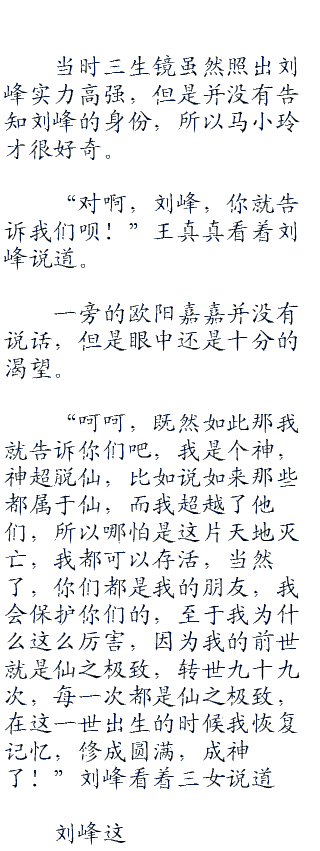 当时三生镜虽然照出刘
峰实力高强，但是并没有告
知刘峰的身份，所以马小玲
才很好奇。
“对啊，刘峰，你就告
诉我们呗！”王真真看着刘
峰说道。
一旁的欧阳嘉嘉并没有
说话，但是眼中还是十分的
渴望。
“呵呵，既然如此那我
就告诉你们吧，我是个神，
神超脱仙，比如说如来那些
都属于仙，而我超越了他
们，所以哪怕是这片天地灭
亡，我都可以存活，当然
了，你们都是我的朋友，我
会保护你们的，至于我为什
么这么厉害，因为我的前世
就是仙之极致，转世九十九
次，每一次都是仙之极致，
在这一世出生的时候我恢复
记忆，修成圆满，成神
了！”刘峰看着三女说道
刘峰这